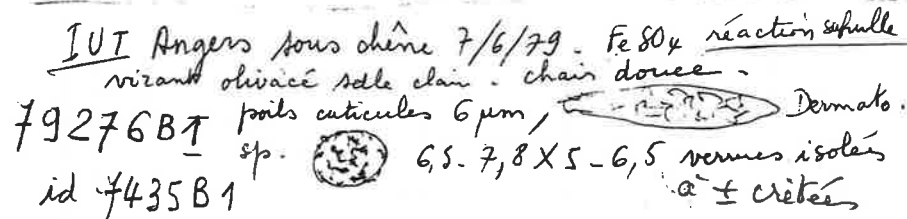 IUT Angers sous chêne 7/6/79 - FeSO4 réaction
virant olivacé sale clair - chair douce -
79276B1 poils cuticules 6 µm, Dermato.
sp. 6,5-7,8 X 5-6,5 verrues isolées
id 7435B1 à ± crêtées